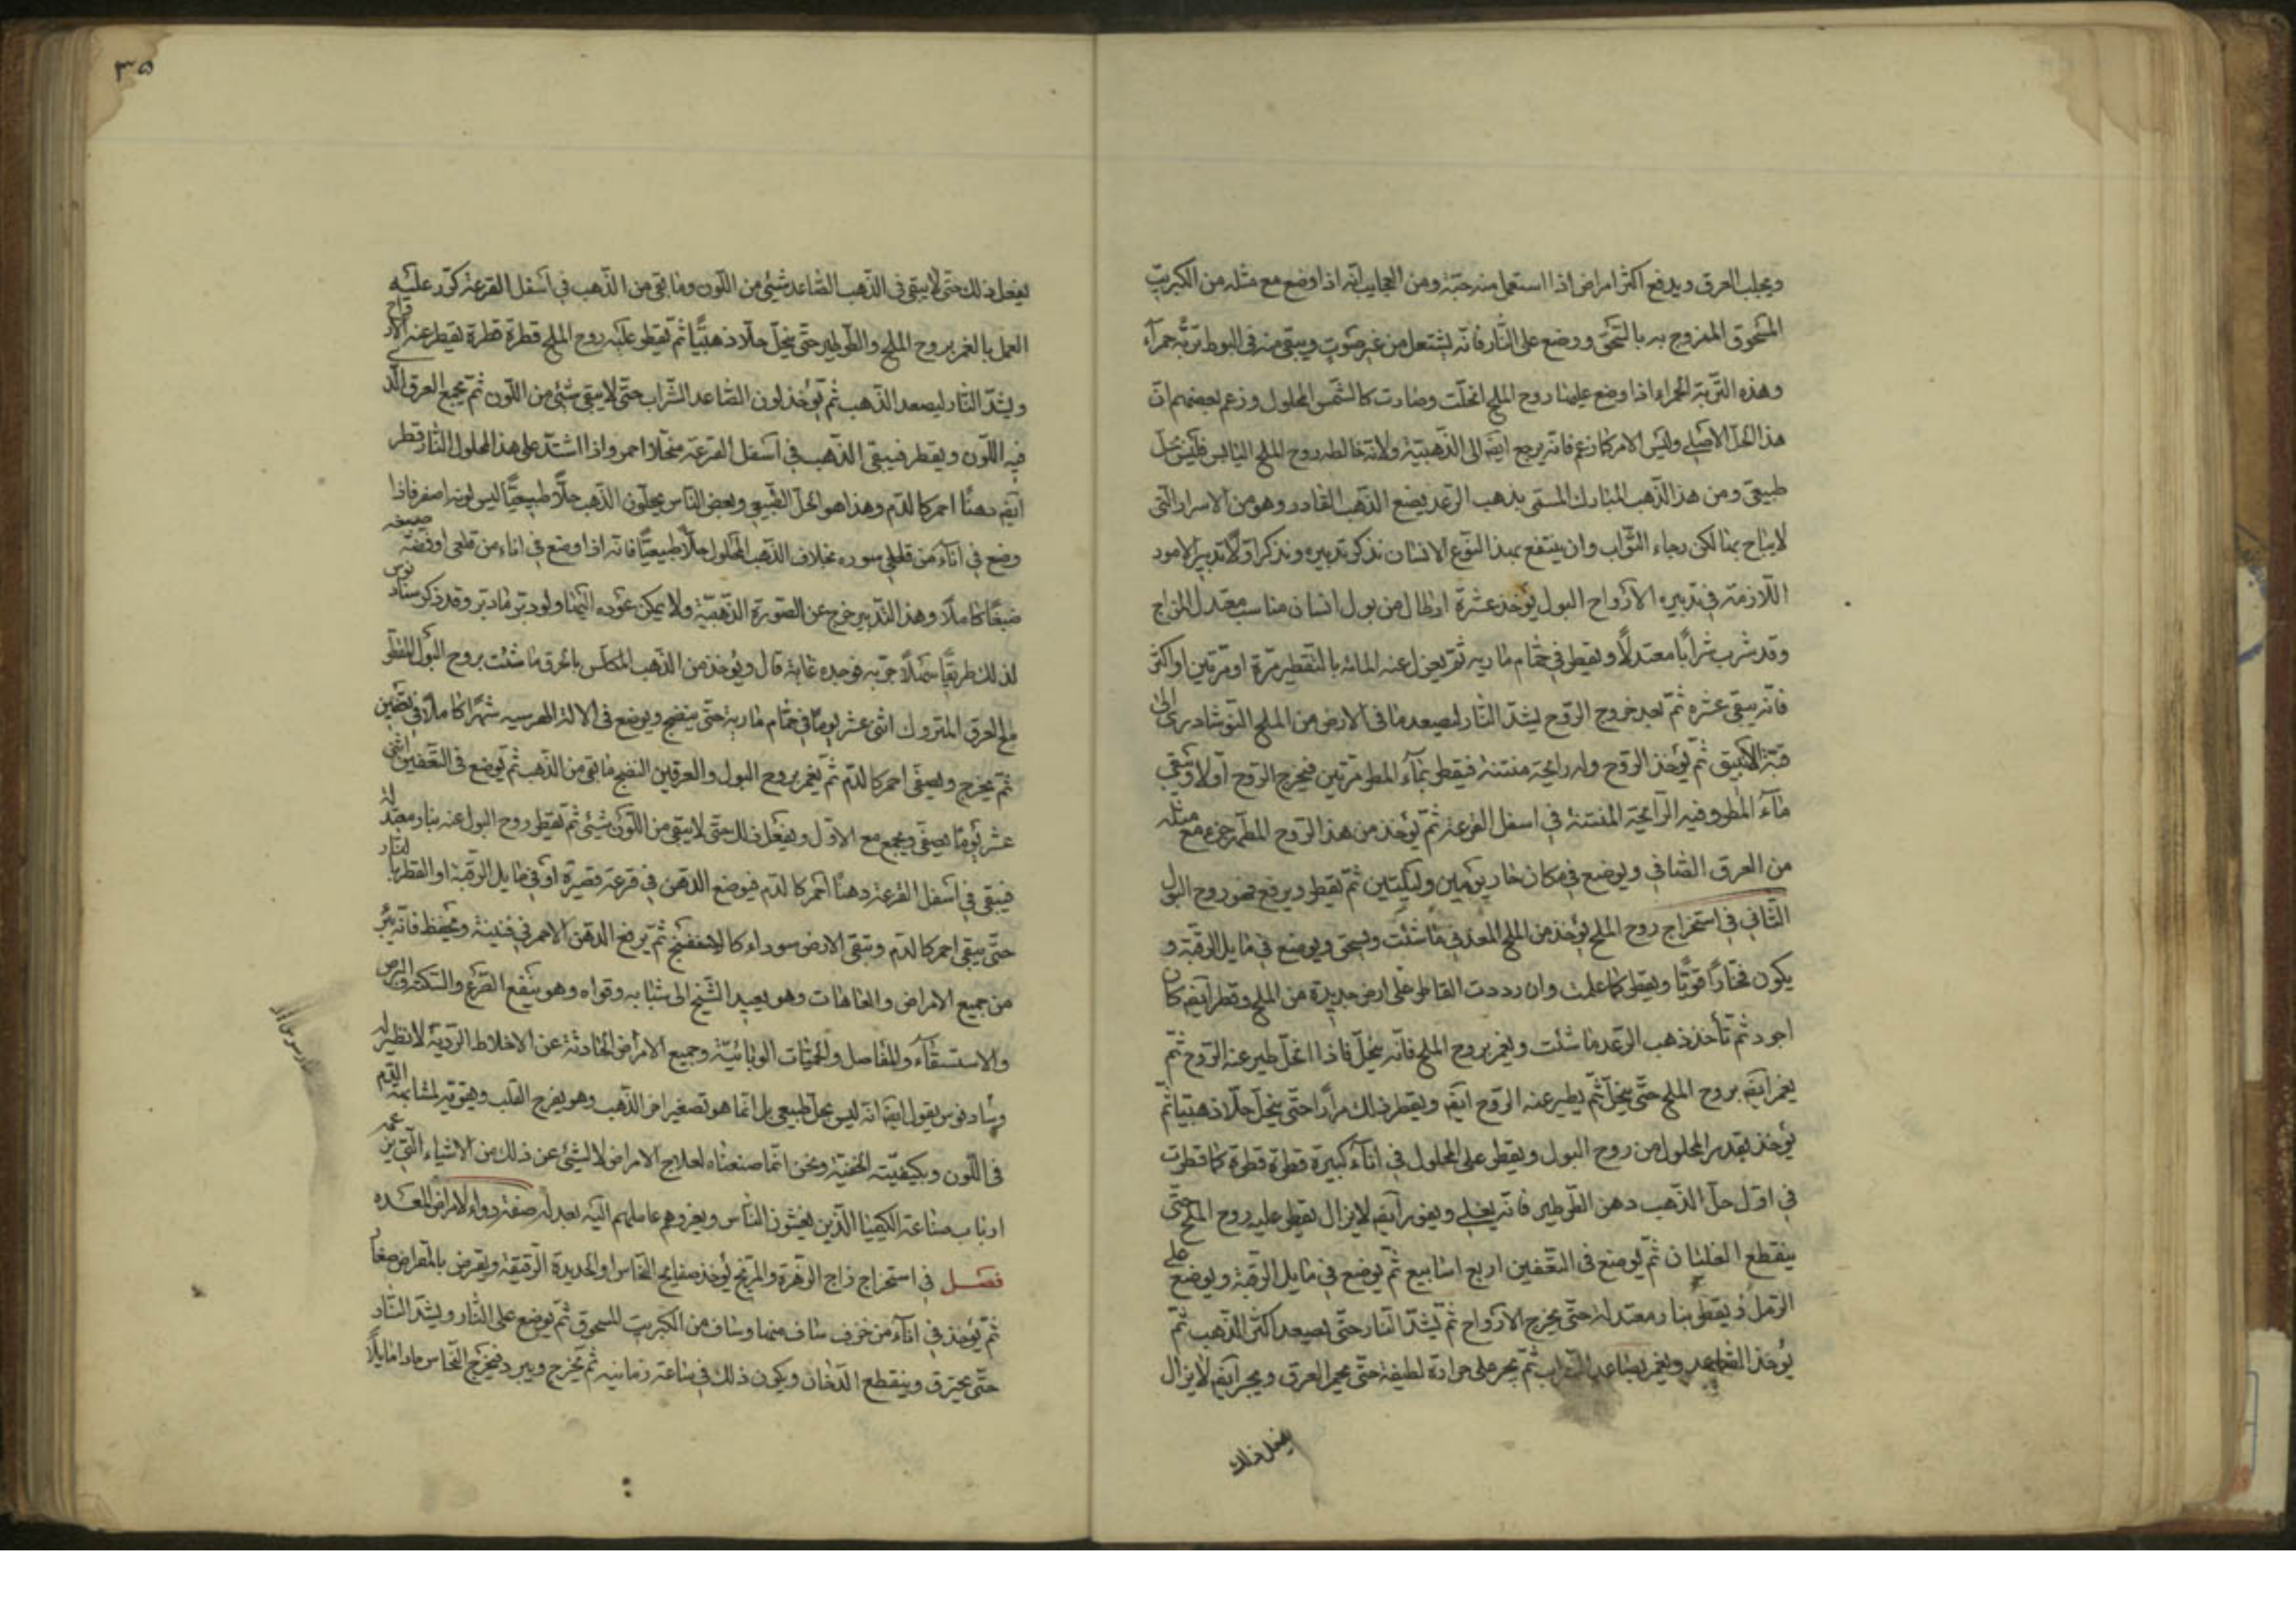 ويجلب العرق ويدفع اكثر امراض اذا استعمل منه حبة ومن العجايب انه اذا وضع مع مثله من الكبريت
المسحوق الممزوج به بالسحق ووضع على النار فانه يشتعل من غير صوت ويبقى منه فى البوط تربة حمرآء
وهذه التربة الحمراء اذا وضع عليها روح الملح انحلت وصارت كالشمس المحلول وزعم بعضهم ان
هذا الحل الاصلى وليس الامر كما زعم فانه يرجع ايضا الى الذهبية ولانه خالطه روح الملح اليابس فليس بحل
طبيعى ومن هذا الذهب المبارك المسمى بذهب الرعد يضع الذهب القادر وهو من الاسرار التى
لا يباح بها لكن رجاء الثواب وان ينتفع بهذا النوع الانسان نذكر تدبيره ونذكر اولا تدبير الامور
اللازمة فى تدبيره الارواح البول يؤخذ عشرة ارطال من بول انسان مناسب معتدل المزاج
وقد شرب شرابا معتدلا ويقطر فى حمام ماريه ثم يعزل عنه المائه بالتقطير مرة او مرتين او اكثر
فانه يبقى عشره ثم بعد خروج الروح يشد النار ليصعد ما فى الارض من الملح النوشادرى الى
قبة الانبيق ثم يؤخذ الروح وله رايحة منتنة فيقطر بمآء المطر مرتين فيخرج الروح اولا ويبقى
مآء المطر وفيه الرايحة المنتنة فى اسفل القرعة ثم يؤخذ من هذا الروح المطهر جزء مع مثله
من العرق الصافى ويوضع فى مكان حار يومين وليلتين ثم يقطر ويرفع فهو روح البول
الثانى فى استخراج روح الملح يؤخذ من الملح المعدنى ما شئت ويسحق ويوضع فى مايل الرقبة و
يكون فخارا قويا ويقطر كما علمت وان رددت القاطر على ارض جديدة من الملح وقطر ايضا كان
اجود ثم تأخذ ذهب الرعد ما شئت ويغمر بروح الملح فانه ينحل فاذا انحل طير عنه الروح ثم
يغمر ايضا بروح الملح حتى ينحل ثم يطير عنه الروح ايضا ويقطر ذلك مرارا حتى ينحل حلا ذهبيا ثم
يؤخذ بقدر المحلول من روح البول ويقطر على المحلول فى انآء كبيرة قطرة قطرة كما قطرت
فى اول حل الذهب دهن الطرطير فانه يغلى ويفور ايضا لا يزال يقطر عليه روح الملح حتى
ينقطع الغليان ثم يوضع فى التعفين اربع اسابيع ثم يوضع فى مايل الرقبة ويوضع على
الرمل ويقطر بنار معتدلة حتى يخرج الارواح ثم يشد النار حتى يصعد اكثر الذهب ثم
يؤخذ الصاعد ويغمر بصاعد الشراب ثم يجر على حرارة لطيفة حتى يحمر العرق ويجر ايضا لا يزال
يفعل ذلك
٣٥
يفعل ذلك حتى لا يبقى فى الذهب الصاعد شيئ من اللون وما بقى من الذهب فى اسفل القرعة كرر عليه
العمل بالغمر بروح الملح والطرطير حتى ينحل حلا ذهبيا ثم يقطر عليه روح الملح قطرة قطرة يقطر عنه الارواح
ويشد النار ليصعد الذهب ثم يؤخذ لون الصاعد الشراب حتى لا يبقى شيئ من اللون ثم يجمع العرق الذى
فيه اللون ويقطر فيبقى الذهب فى اسفل القرعة منحلا احمر واذا اشتد على هذا المحلول النار قطر
ايضا دهنا احمر كالدم وهذا هو الحل الطبيعى وبعض الناس يحلون الذهب حلا طبيعيا ليس لونه اصفر فاذا
وضع فى انآء من قلعى سوره بخلاف الذهب المحلول حلا طبيعيا فانه اذا وضع فى اناء من قلعى او فضة صبغه
صبغا كاملا وهذا التدبير خرج عن الصورة الذهبية ولا يمكن عوده اليها ولو دبر ما دبر وقد ذكر سنادنوس
لذلك طريقا سهلا جربه فوجده غاية قال ويؤخذ من الذهب المكلس بالحرق ما شئت بروح البول المقطر
مع العرق المتروك اثنى عشر يوما فى حمام ماريه حتى ينضج ويوضع فى الالة الهرمسيه شهرا كاملا فى تعفين
ثم يخرج ويصفى احمر كالدم ثم يغمر بروح البول والعرقين النضج ما بقى من الذهب ثم يوضع فى التعفين اثنى
عشر يوما يصفى ويجمع مع الاول ويفعل ذلك حتى لا يبقى من اللون شيئ ثم يقطر روح البول عنه بنار معتدلة
فيبقى فى اسفل القرعة دهنا احمر كالدم فيوضع الدهن فى قرعة قصيرة او فى مايل الرقبة او القطر بالنار
حتى يبقى احمر كالدم وتبقى الارض سوداء كالاسفنج ثم يرفع الدهن الاحمر فى قنينة ويحفظ فانه يبرئ
من جميع الامراض والعاهات وهو يعيد الشيخ الى شبابه وقواه وهو ينفع القرع والسكته والبرص
والاستسقاء والمفاصل والحميات الوبائية وجميع الامراض الحادثة عن الاخلاط الردية لا نظير له
وسنادنوس يقول ايضا انه ليس بحل طبيعى بل انما هو تصغير اض الذهب وهو يفرح القلب ويقويه لمشابهة الدم
فى اللون وبكيفيته الخفية ونحن انما صنعناه لعلاج الامراض لا لشيئ عن ذلك من الاشياء التى يزعمه
ارباب صناعة الكيميا الذين يغشون الناس ويغروهم عاملهم اليه بعدله صفة دواء لامراض المعده
فصل فى استخراج زاج الزهرة والمريخ يؤخذ صفايح النحاس او الحديدة الرقيقة ويقرض بالمقراض صغارا
ثم يؤخذ فى انآء من خزف ساف منها وساف من الكبريت المسحوق ثم يوضع على النار ويشد النار
حتى يحترق وينقطع الدخان ويكون ذلك فى ساعة زمانيه ثم يخرج ويبرد فيخرج النحاس مادا مايلا